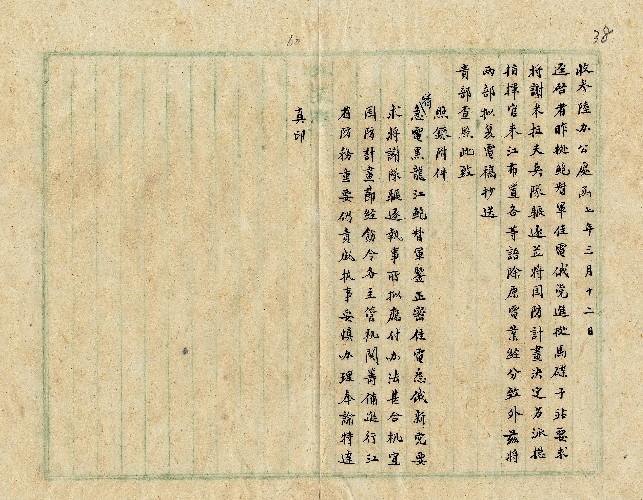 38
收參陸辦公處函七年三月十二日
逕啓者昨據鮑督軍佳電俄党進據馬礫子站要求
將謝米拉夫兵隊驅逐並將国防計畫決定另派總
指揮官来江布置各等語除原電業經分致外茲將
两部拟复電稿抄送
貴部查照此致
照錄附件
急電黑龍江鮑督軍鑒正密佳電悉俄新党要
求將謝隊驅逐執事所拟應付办法甚合机宜
国防計畫節經飭令各主管机関籌備進行江
省防務重要仍責成执事妥慎办理奉諭特達
真印